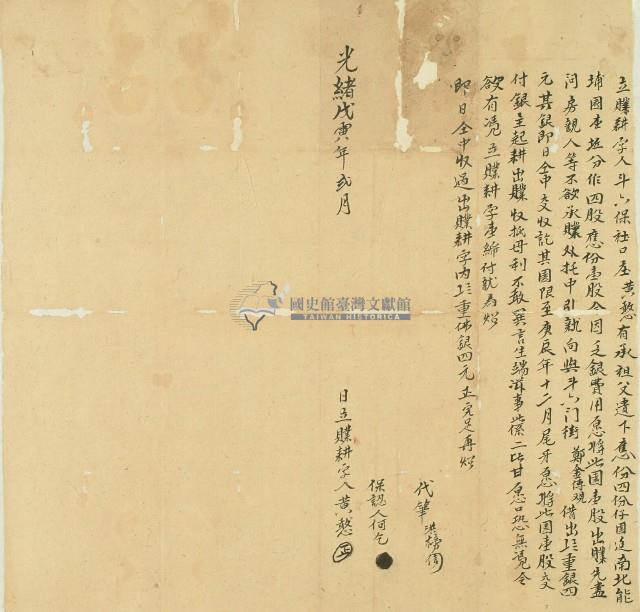 立贌耕字人斗六保社口庄黃憨有承祖父遺下應份四份仔園迄南北能
埔園壹坵分作四股應份壹股今因乏銀費用愿將此園壹股出贌先盡
问房親人等不欲承贌外托中引就向與斗六门街鄭金傳观借出六八重銀四
元其銀即日仝中交收訖其園限至庚辰年十二月尾牙愿將此園壹股交
付銀主起耕出贌收抵母利不敢異言生端滋事此係二比甘愿口恐無憑今
欲有憑立贌耕字壹紙付执為炤
即日仝中收過出贌耕字內六八重佛銀四元正完足再炤
代筆洪
保認人何乞
日立贌耕字人黃憨
光緒戊寅年弍月
國史館臺灣文獻館
TAIWAN HISTORICA